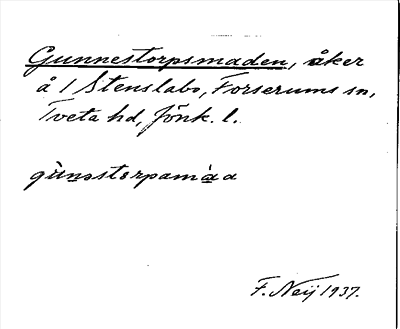 Gunnestorpsmaden, åker
å 1 Stenslabo, Forserums sn,
Tveta hd, Jönk. l.
gùnəstorpamàa
F. Neij 1937.